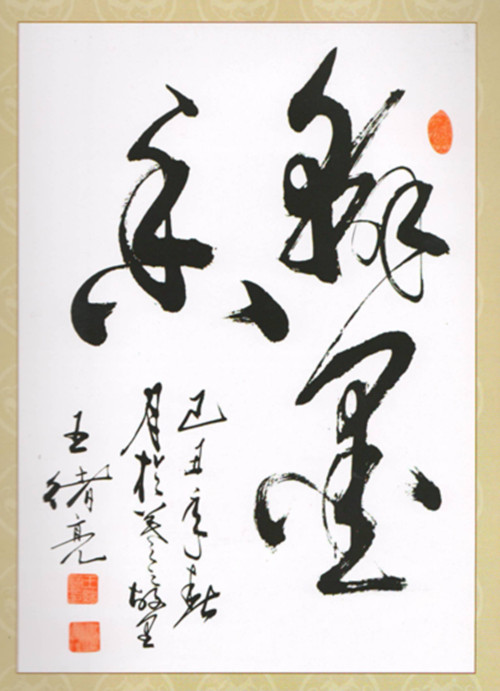 翰墨
香
己丑年春
月於羲之故里
王绪亮